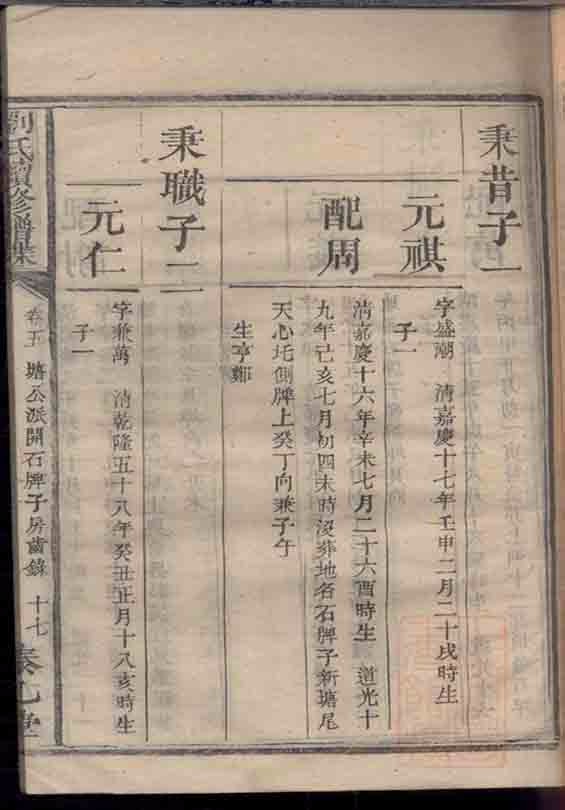 秉昔子一
元祺
字盛潮 清嘉慶十七年壬申二月二十戌時生
子一
配周
清嘉慶十六年辛未七月二十六酉時生 道光十
九年己亥七月初四未時沒葬地名石牌子新塘尾
天心圫側牌上癸丁向兼子午
生亨鄭
秉職子二
元仁
字兼萬 清乾隆五十八年癸丑正月十八亥時生
子一
劉氏續修譜牒
卷五 塘公派開石牌子房齒錄 十七